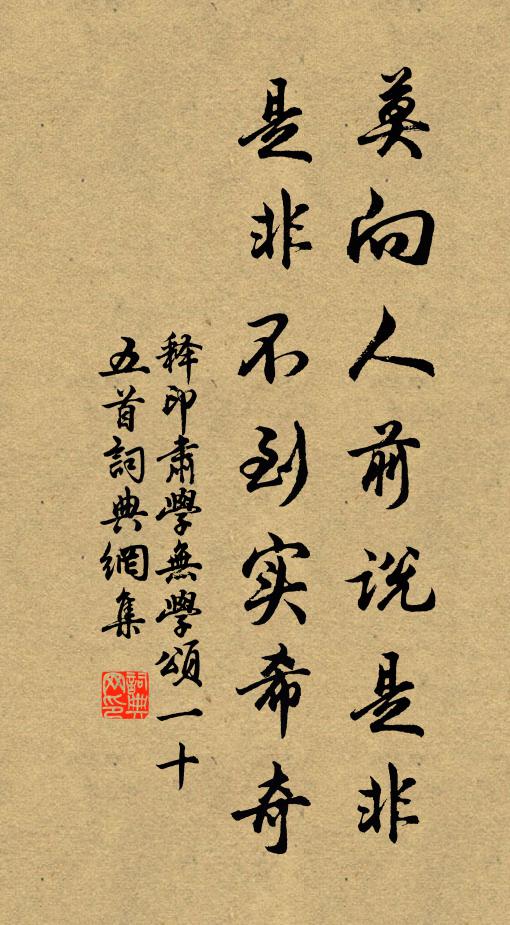 莫向人前说是非
是非不到实希奇
释印肃學無學頌一十
五首詞典網集
詞典網印